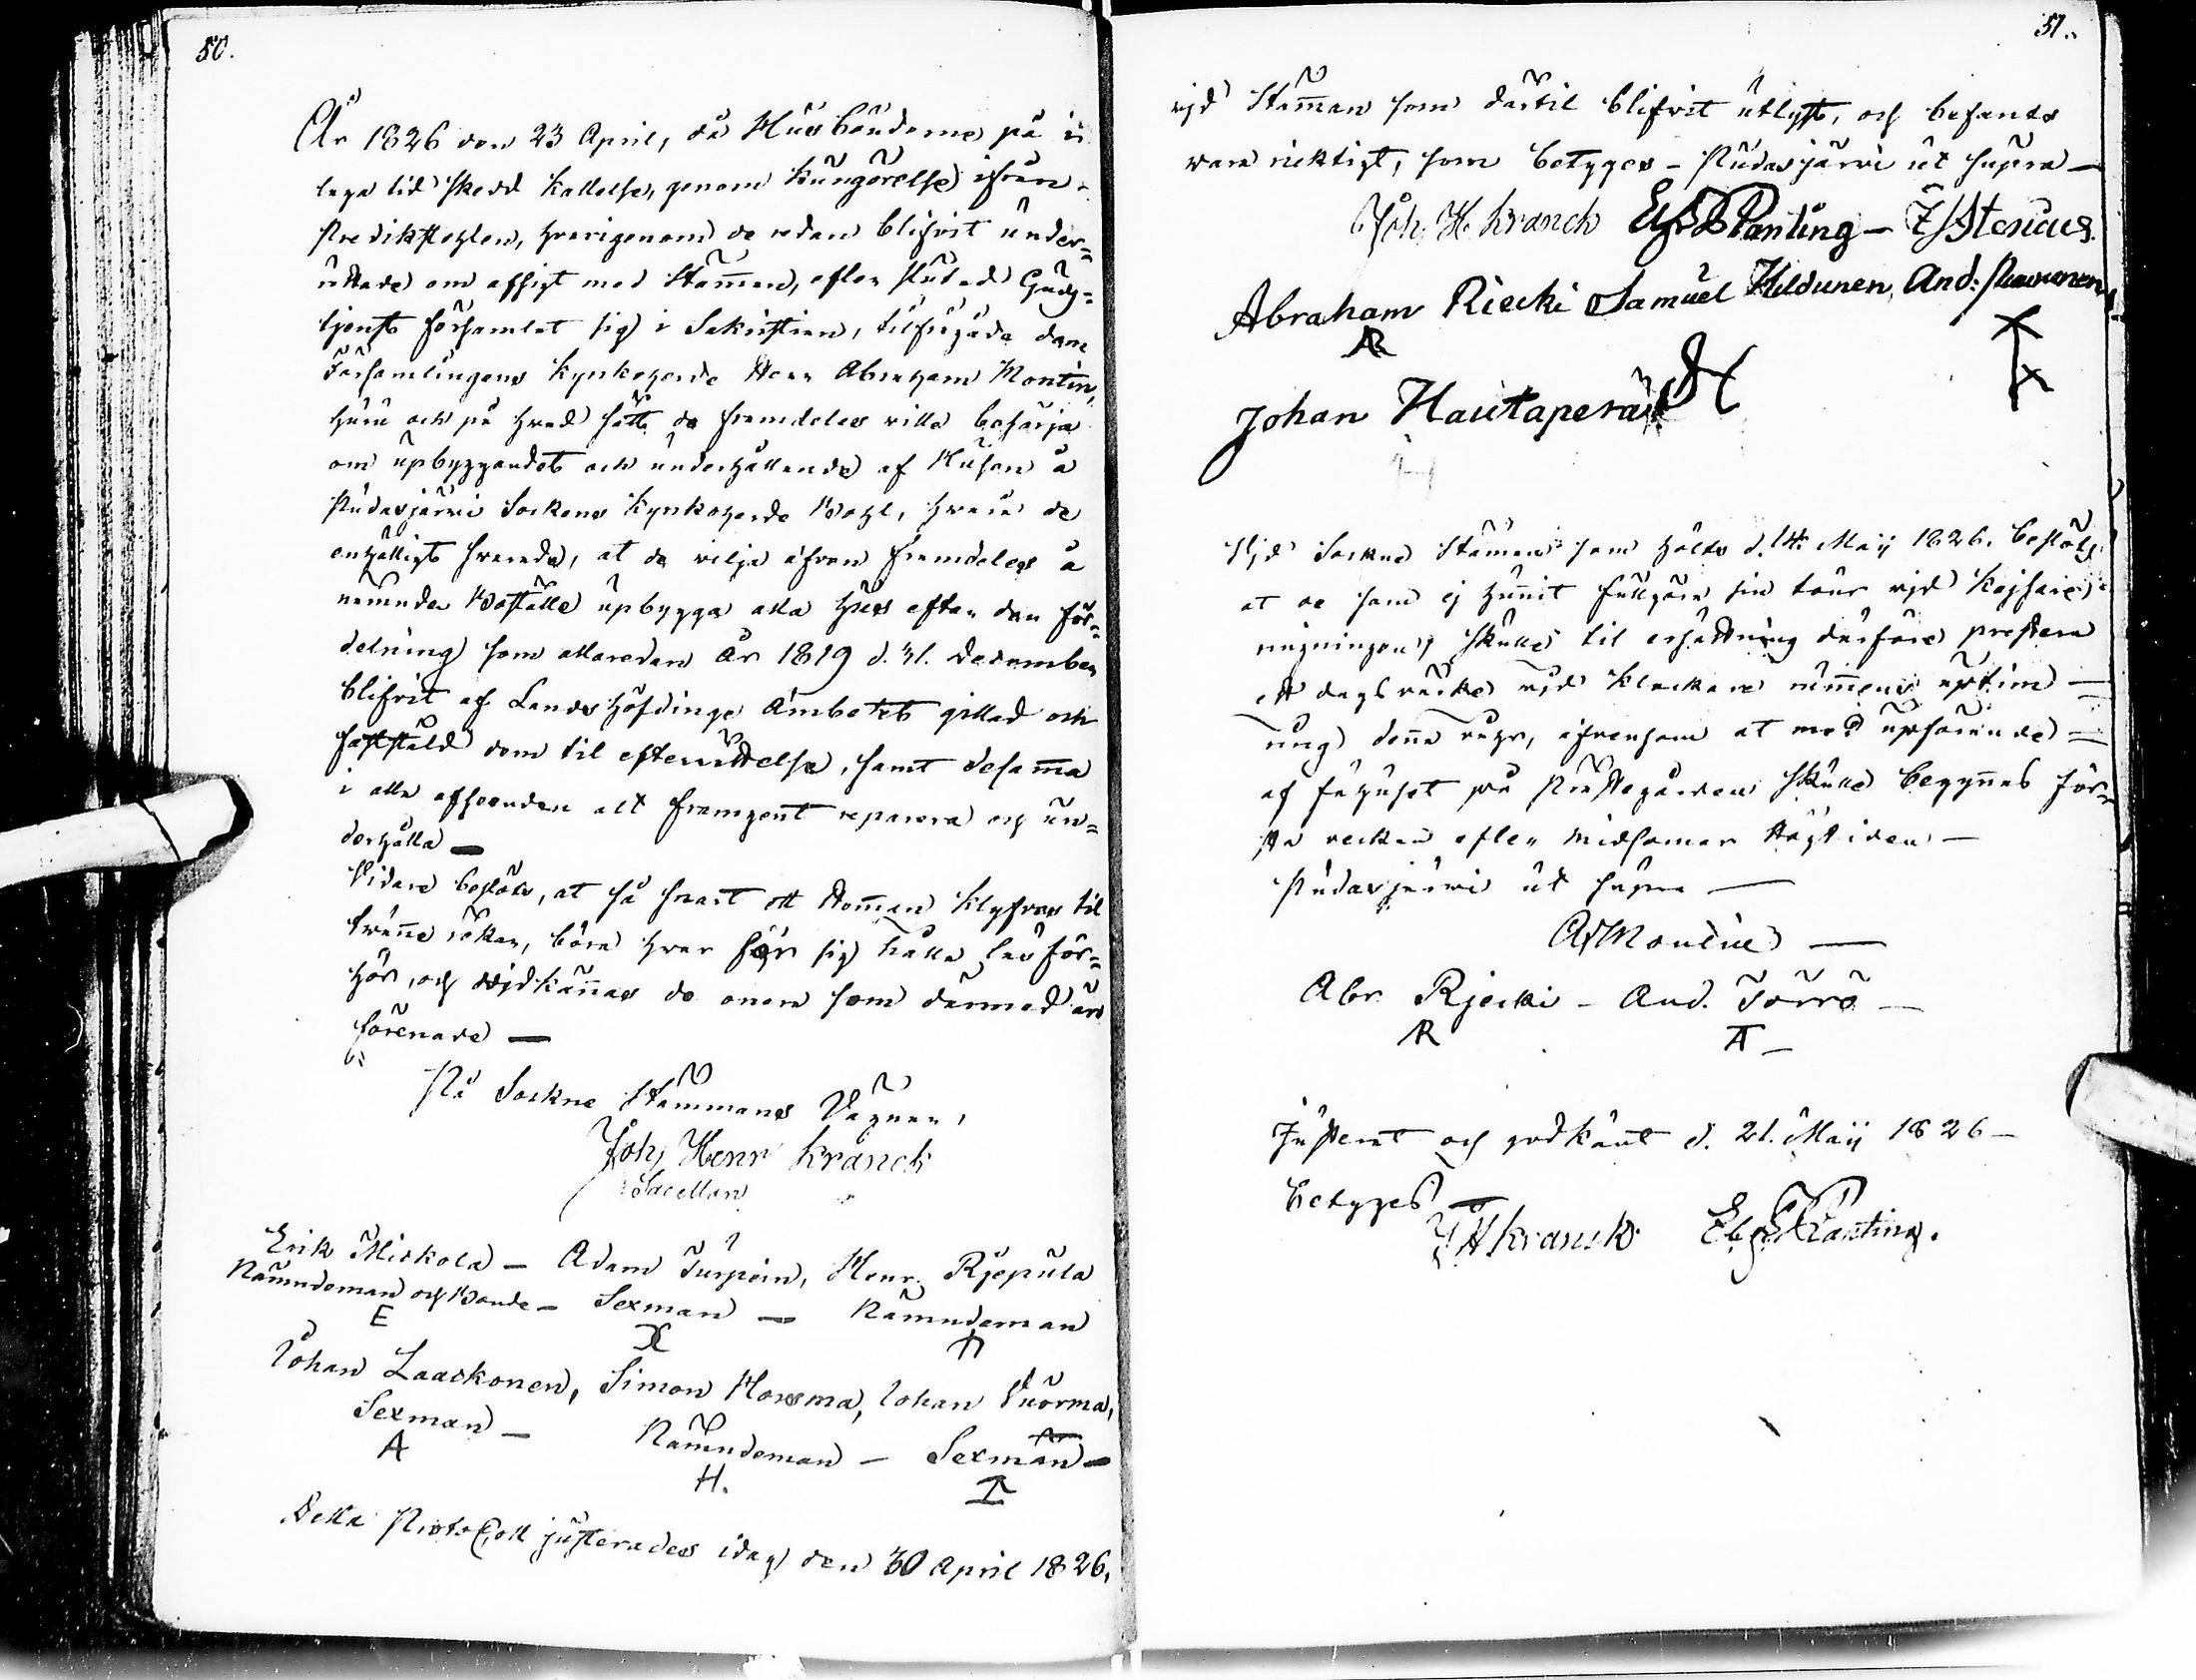 50.
År 1826 den 23 April, då Husbönderne på i
laga tid skedd kallelse, genom kungörelse ifrån
Prediksto̅len, hvarigenom de redan blifvit under-
rättade om afsigt med Stämman, efter slutad Guds-
tjenst församlat sig i Sakristian, tilfrågade dem
Församlingens Kyrkoherde Herr Abraham Montin,
huru och på hvad sätt de framdeles ville besörja
om upbyggandet och underhållande af Husen å
Pudasjärvi Sockens Kyrkoherde Bohl, hvarå de
enhälligt svarade, at de vilja äfven framdeles å
nämnde Boställe upbygga alla hus efter den för-
delning som allaredan År 1819 d. 31. December
blifvit af Landshöfdinge Ämbetet gillad och
fastställd dem til efterrättelse, samt desamma
i alla afseenden alt framgent reparera och un-
derhålla —
Vidare beslöts, at så snart ett Hemman klyfves til
tvänne rökar, böra hvar för sig hålla läsför-
hör, och vidkännas de onera som dermed äro
förenade —
På Sockne Stämmans Vägnar,
Joh. Henr Kranck
Sacellan
Erik Niskola — Adam Turpein, Henr. Rjepula
Nämndeman och Bonde — Sexman — Nämndeman
E
Johan Laackonen, Simon Hovsma, Johan Vuorma,
Sexman — Nämndeman — Sexman —
A H.
Detta Protocoll justerades idag den 30 April 1826,
51.
vid Stämman som därtil blifvit utlyst, och befants
vara riktigt, som betyges — Pudasjärvi ut supra —
Joh. H. Kranck Planting —
Abraham Riecki Samuel Hildunen, And:
AR
Johan Hautaperä
Vid Sockne Stämman som hölts d. 14. Maij 1826. beslöts
at de som ej hunnit fullgöra sin tour vid
skulle til ersättning därföre prestera
ett dagsvärke vid Klockare
denna at med upförande
af fähuset på Prästegården skulle begynnas för-
sta veckan efter Midsomar Högtiden —
Pudasjärvi ut supra —
Abr Montin —
Abr Rjecki — And. Törrö —
AR
Justerat och godkänt d. 21. Maij 1826 —
betyges —
J H Kranck Planting.